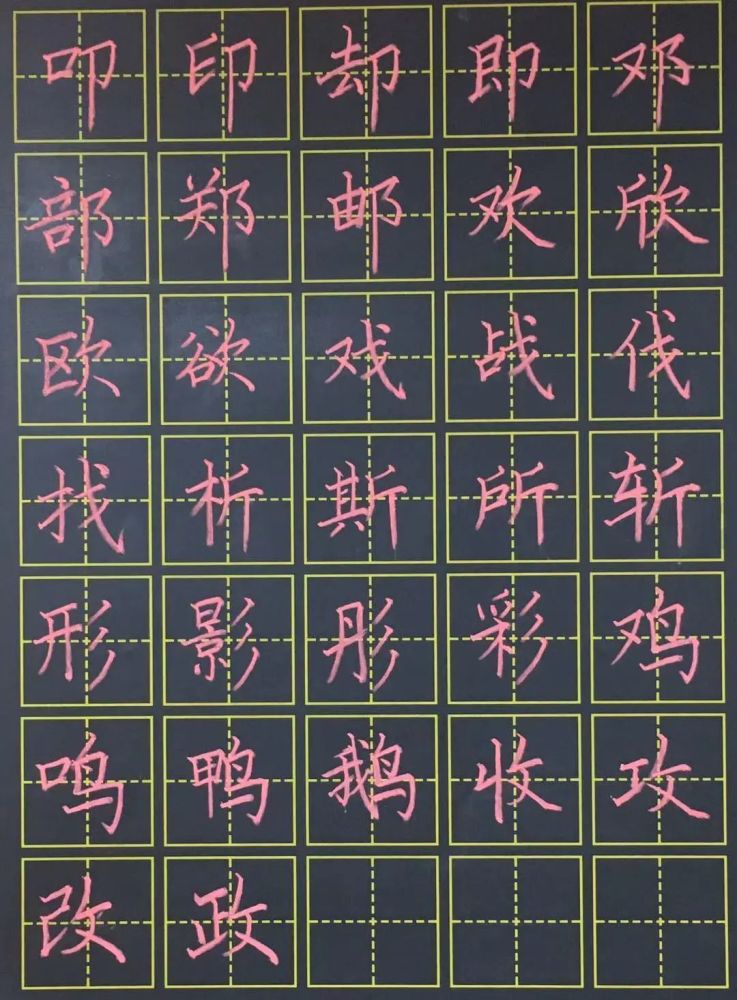 叩印却即邓
部郑邮欢欣
欧欲戏战伐
找析斯所斩
形影彤彩鸡
鸣鸭鹅收攻
改政